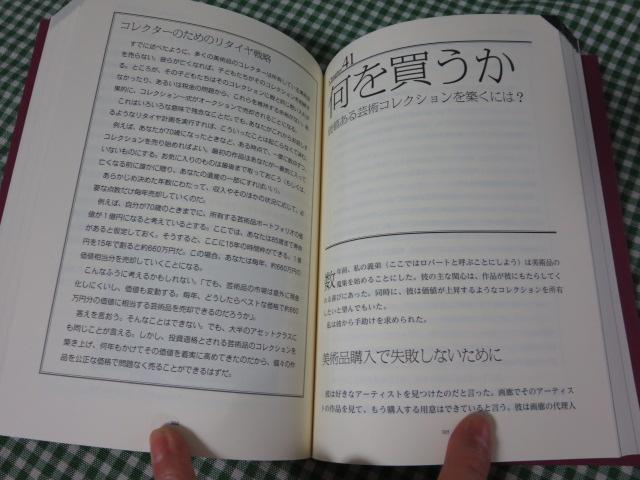 コレクターのためのリタイヤ戦略
すでに述べたように、多くの美術品のコレクターは所有している美術品
を売らない。自らが亡くなれば、子どもたちがそのコレクションを
る。ところが、その子どもたちはそのコレクションに親と同じ
なかったり、あるいは税金の問題から、これらを維持する余裕がない。結
果的に、コレクション一式がオークション売却されることになる。
これはいろいろな意味で残念なことだ。でも、あなたがこれからお話しす
るようなリタイヤ計画を実行すれば、こういったことは起こらなくて済む。
例えば、あなたが70歳になったときなど、ある時点で、一度に数点ずつ、
コレクションを売り始めればよい。最初の作品はあなたが一番気に入って
いないものにする。お気に入りのものは最後まで取っておこう（もしくは、
亡くなる前に誰かに贈り、あなたの遺産の一部にすればいい）。
あらかじめ決めた年数にわたって、収入やそのほかの状況に応じて、必
要な点数だけ毎年売却していくのだ。
例えば、自分が70歳のときまでに、所有する芸術品ポートフォリオの価
値が1億円になると考えているとする。ここでは、あなたは85歳まで寿命
があると仮定しておく。そうすると、ここに15年の時間枠ができる。1億
円を15年で割ると約660万円だ。この場合、あなたは毎年、約660万円の
価値相当分を売却していくことになる。
こんなふうに考えるかもしれない。「でも、芸術品の市場は意外に現金
化しにくいし、価値も変動する。毎年、どうしたらベストな価格で約660
万円分の価値に相当する芸術品を売却できるのだろうか」。
答えを言おう。そんなことはできない。でも、大半のアセットクラスに
も同じことが言える。しかし、投資適格とされる芸術品のコレクションを
築き上げ、何年もかけてその価値を着実に高めてきたのだから、個々の作
品を公正な価格で問題なく売ることができるはずだ。
41
何を買うか
価値ある芸術コレクションを築くには？
数年前、私の義弟（ここではロバートと呼ぶことにしよう）は美術品の
蒐集を始めることにした。彼の主な関心は、作品が彼にもたらしてく
れる喜びにあった。同時に、彼は価値が上昇するようなコレクションを所有
したいと望んでもいた。
私は彼から手助けを求められた。
美術品購入で失敗しないために
彼は好きなアーティストを見つけたのだと言った。画廊でそのアーティス
トの作品を見て、もう購入する用意はできていると言う。彼は画廊の代理人